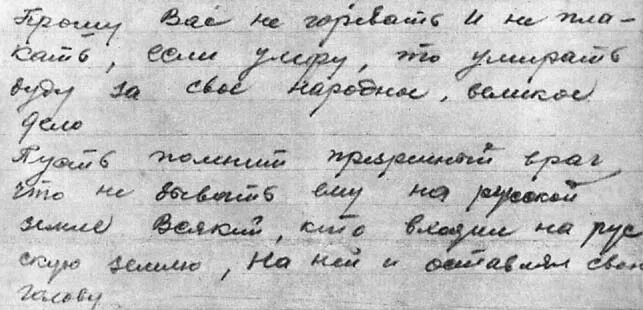 Прошу Вас не горевать и не пла-
кать, если умру, то умирать
буду за свое народное, великое
дело
Пусть помнит презренный враг
что не бывать ему на русской
земле Всякий, кто входил на рус
скую землю, на ней и оставлял свою
голову